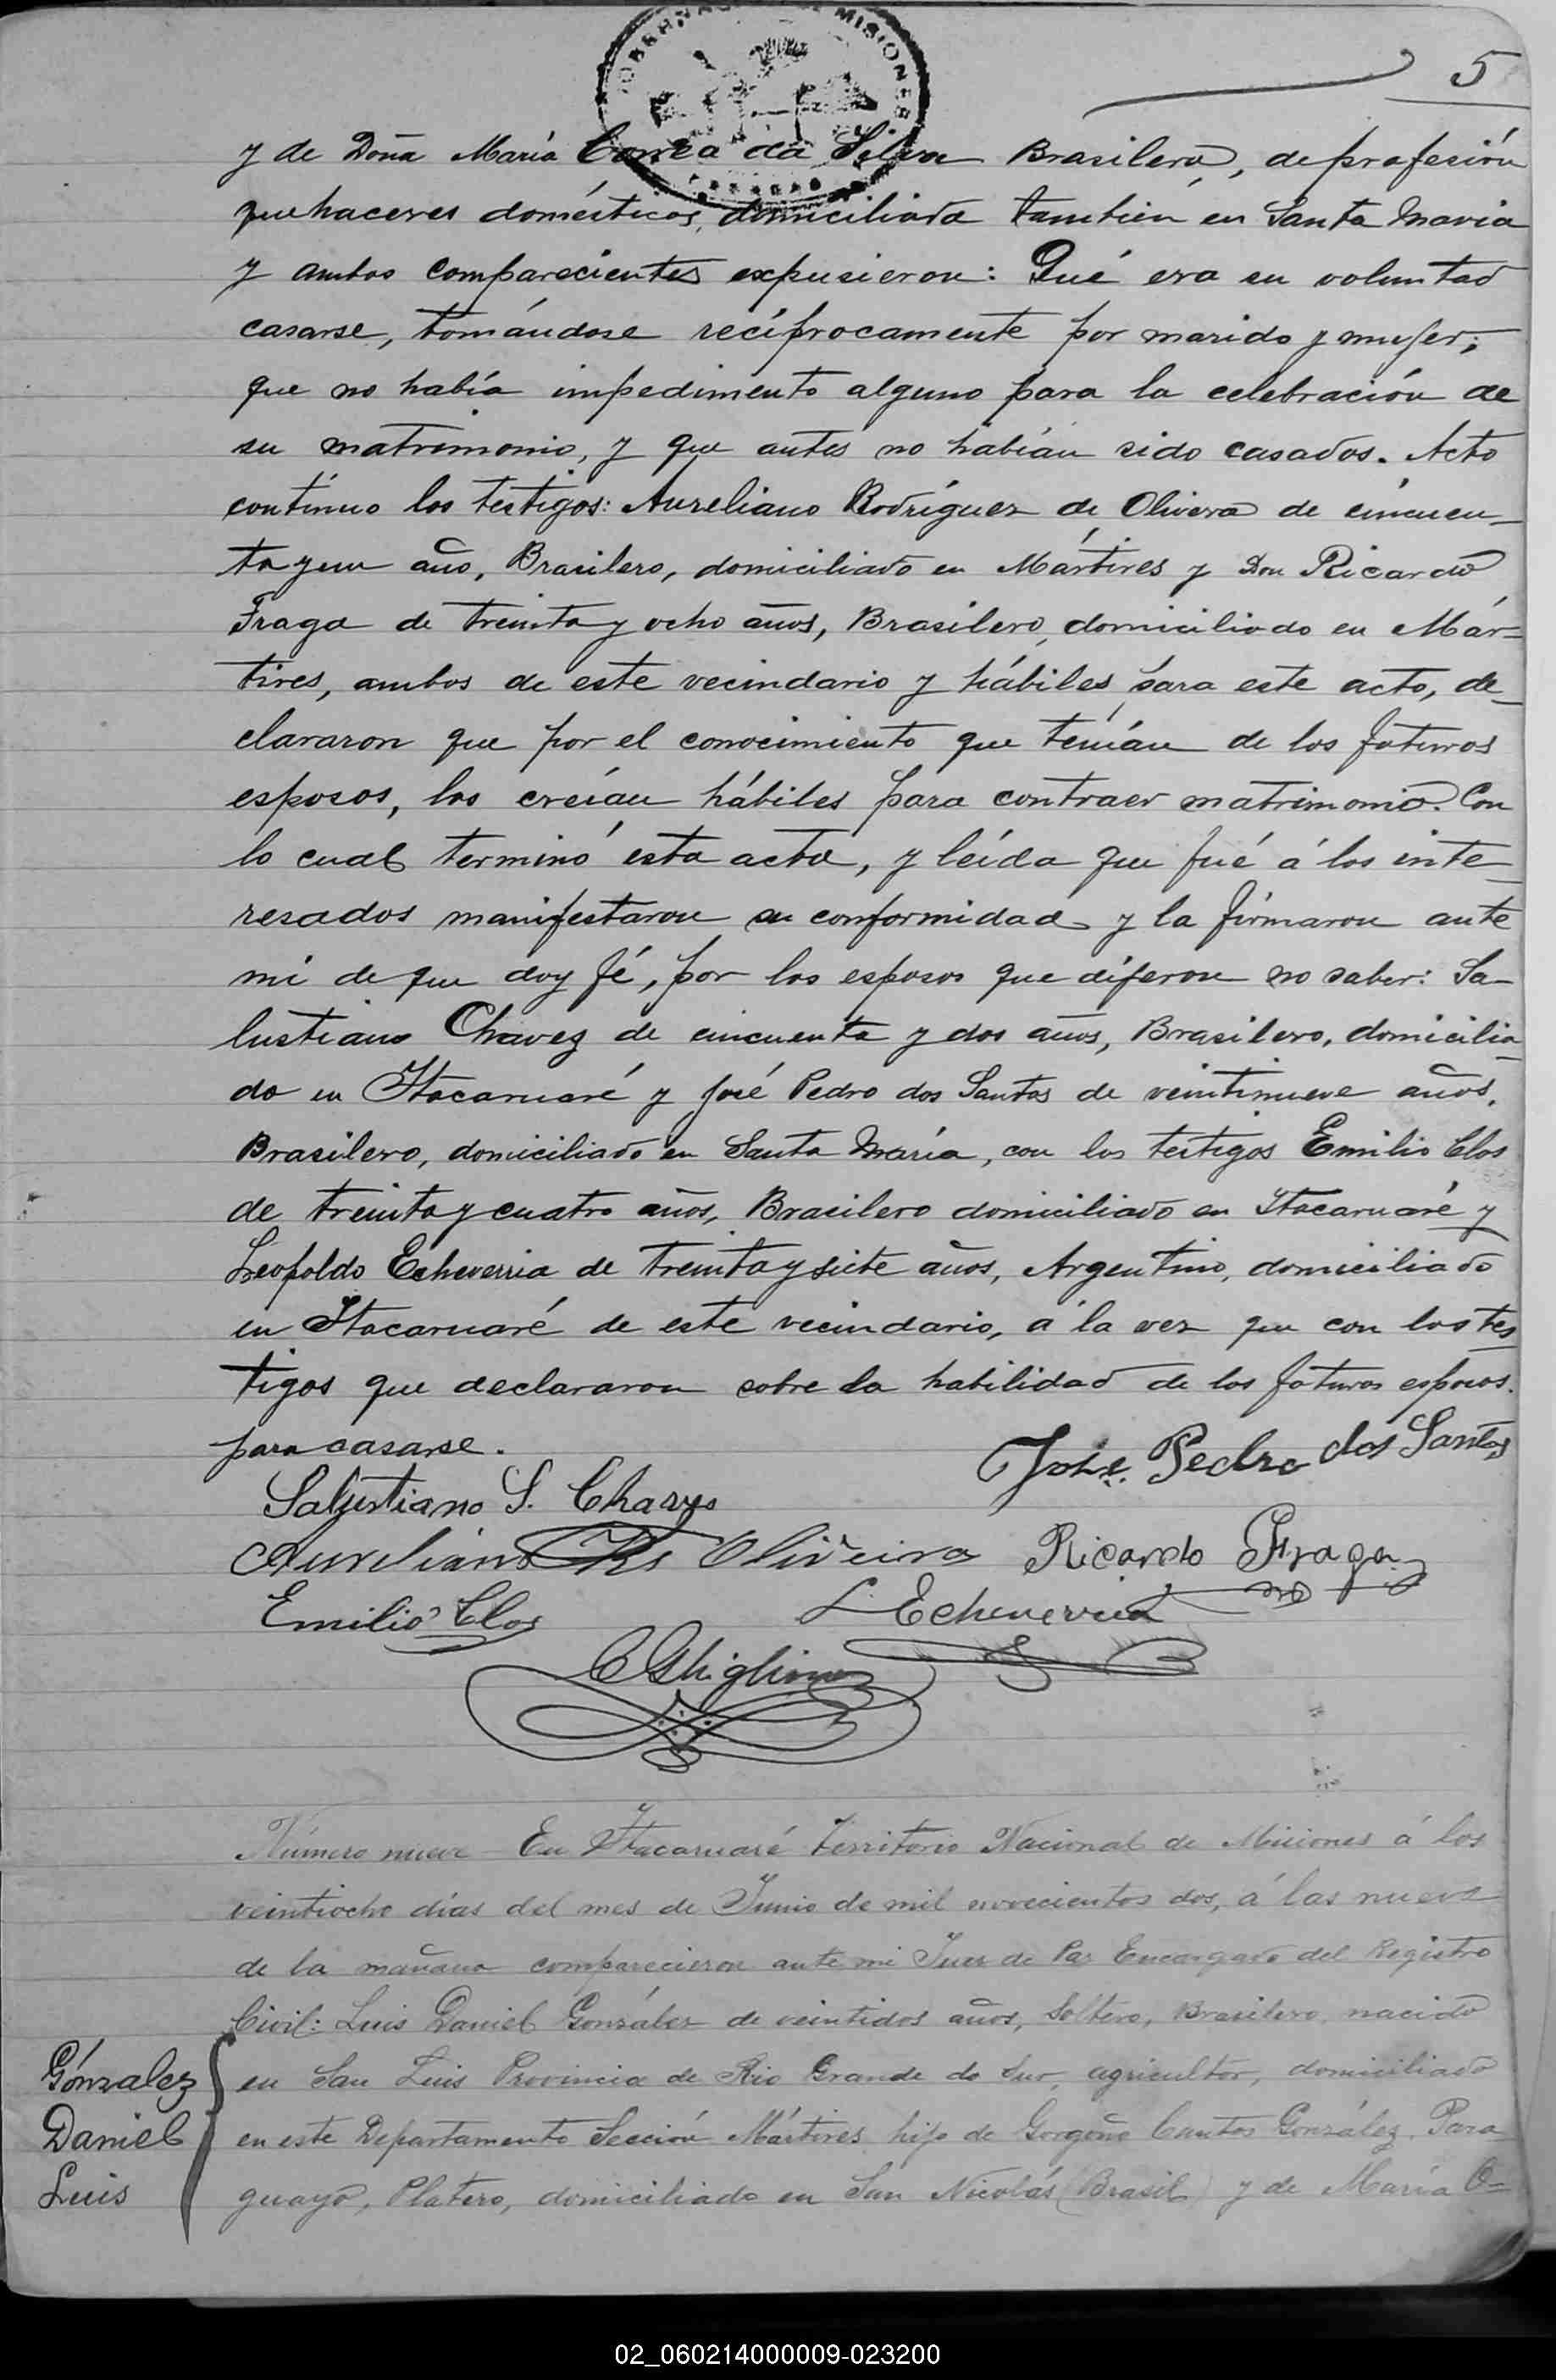 GOBERNACION DE MISIONES
5
y de Doña María Correa da Silva Brasilera, de profesión
quehaceres domésticos, domiciliada también en Santa María
y ambos comparecientes expusieron: Qué era su voluntad
casarse, tomándose recíprocamente por marido y mujer;
que no había impedimento alguno para la celebración de
su matrimonio, y que antes no habían sido casados. Acto
contínuo los testigos: Aureliano Rodríguez de Olivera de cincuen_
ta y un año, Brasilero, domiciliado en Mártires y Don Ricardo
Fraga de treinta y ocho años, Brasilero, domiciliado en Már=
tires, ambos de este vecindario y hábiles para este acto, de_
clararon que por el conocimiento que tenían de los futuros
esposos, los creían hábiles para contraer matrimonio. Con
lo cual terminó esta acta, y leída que fué á los inte_
resados manifestaron su conformidad y la firmaron ante
mi de que doy fé, por los esposos que dijeron no saber: Sa_
lustiano Chavez de cincuenta y dos años, Brasilero, domicilia_
do en Itacaruaré y José Pedro dos Santos de veintinueve años,
Brasilero, domiciliado en Santa María, con los testigos Emilio Clos
de treinta y cuatro años, Brasilero domiciliado en Itacaruaré y
Leopoldo Echeverria de treinta y siete años, Argentino, domiciliado
en Itacaruaré de este vecindario, á la vez que con los tes
tigos que declararon sobre la habilidad de los futuros esposos
para casarse.
José Pedro dos Santos
Salustiano S. Chaves
Aureliano Rs Oliveira Ricardo Fraga
Emilio Clos L. Echeverria
C Ghiglione
Número nueve En Itacaruaré Territorio Nacional de Misiones á los
veintiocho días del mes de Junio de mil novecientos dos, á las nueve
de la mañana comparecieron ante mi Juez de Paz Encargado del Registro
Civil: Luis Daniel González de veintidos años, Soltero, Brasilero, nacido
en San Luis Provincia de Rio Grande do Sur, agricultor, domiciliado
en este Departamento Sección Mártires, hijo de Gorgoño Cantos González, Para_
guayo, Platero, domiciliado en San Nicolás (Brasil) y de María O=
Gónzalez
Daniel
Luis
02_060214000009-023200